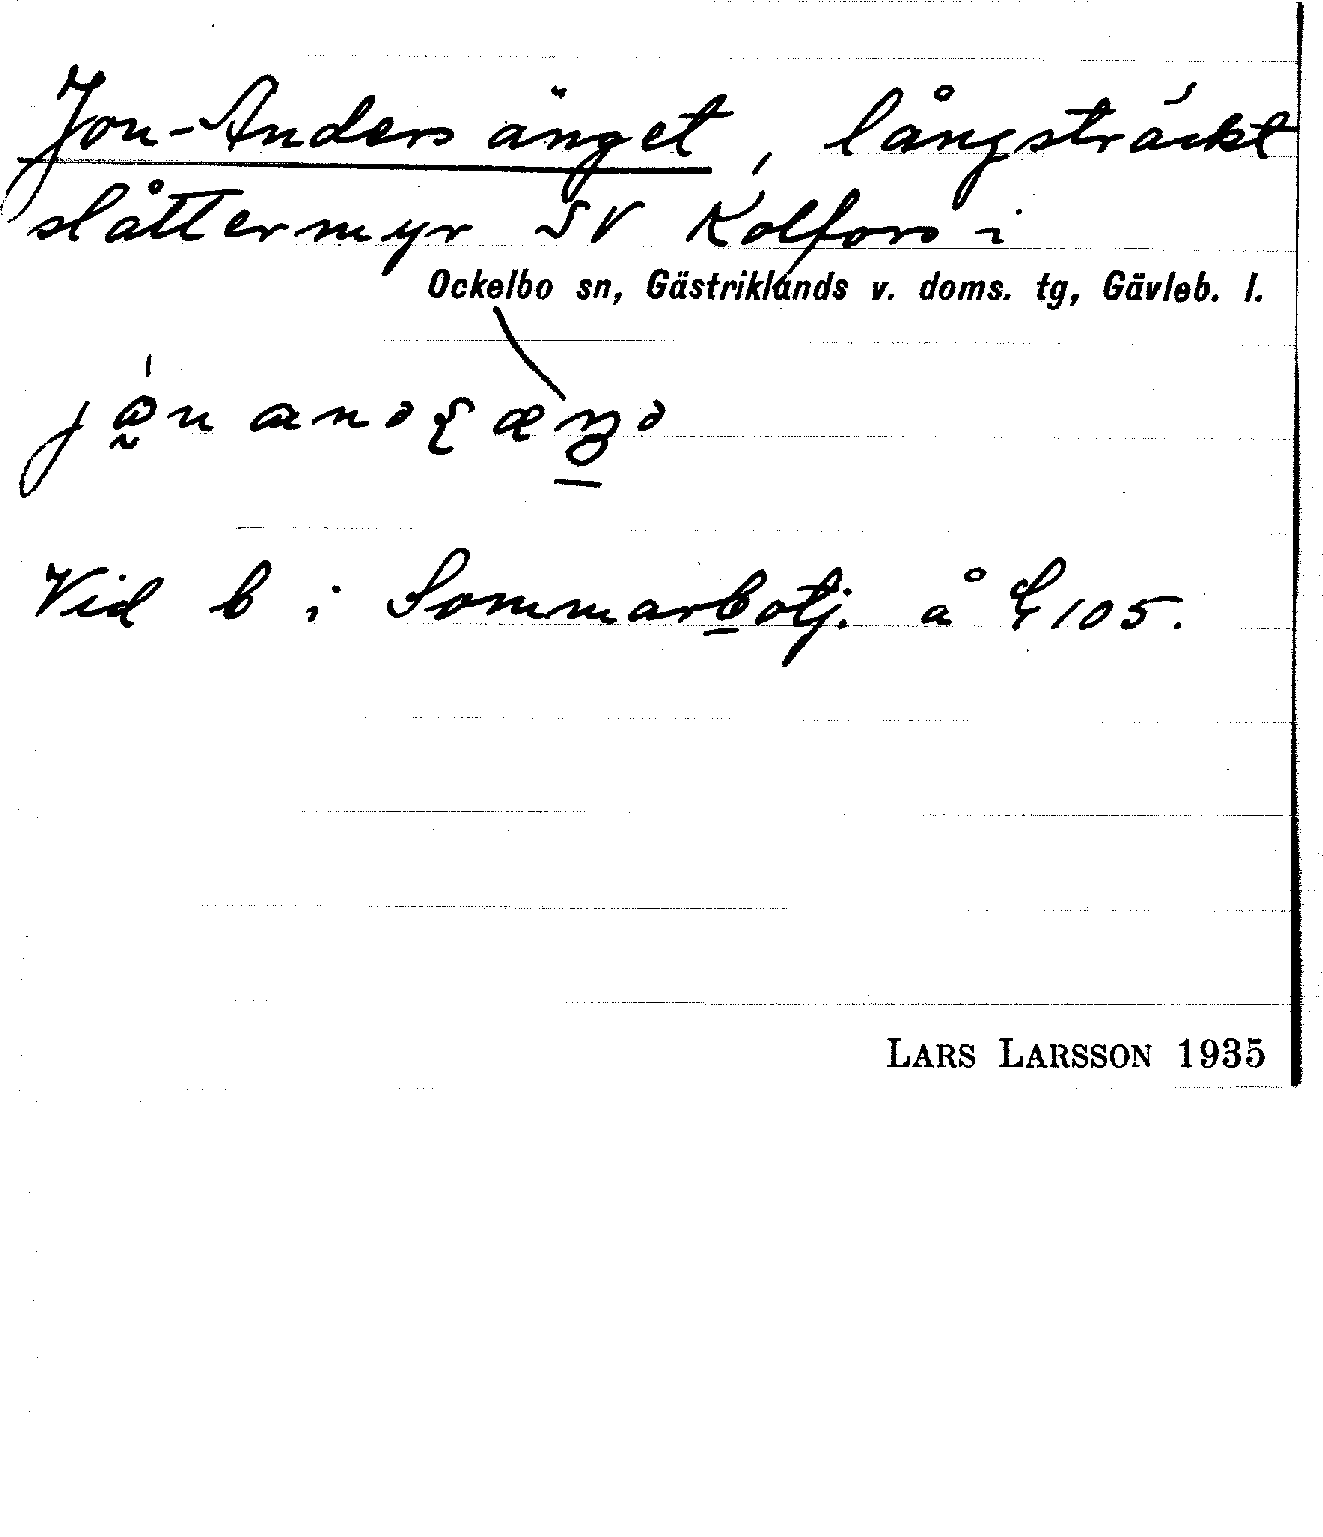 Jon-Anders änget, långsträckt
slåttermyr SV Kolfors i
Ockelbo sn, Gästriklands v. doms. tg, Gävleb. l.
Vid b i Sommarbotj. å 105.
LARS LARSSON 1935